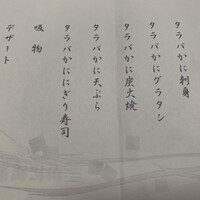 タラバかに刺身
タラバかにグラタン
タラバかに炭火焼
タラバかに天ぷら
タラバかににぎり寿司
吸物
デザート